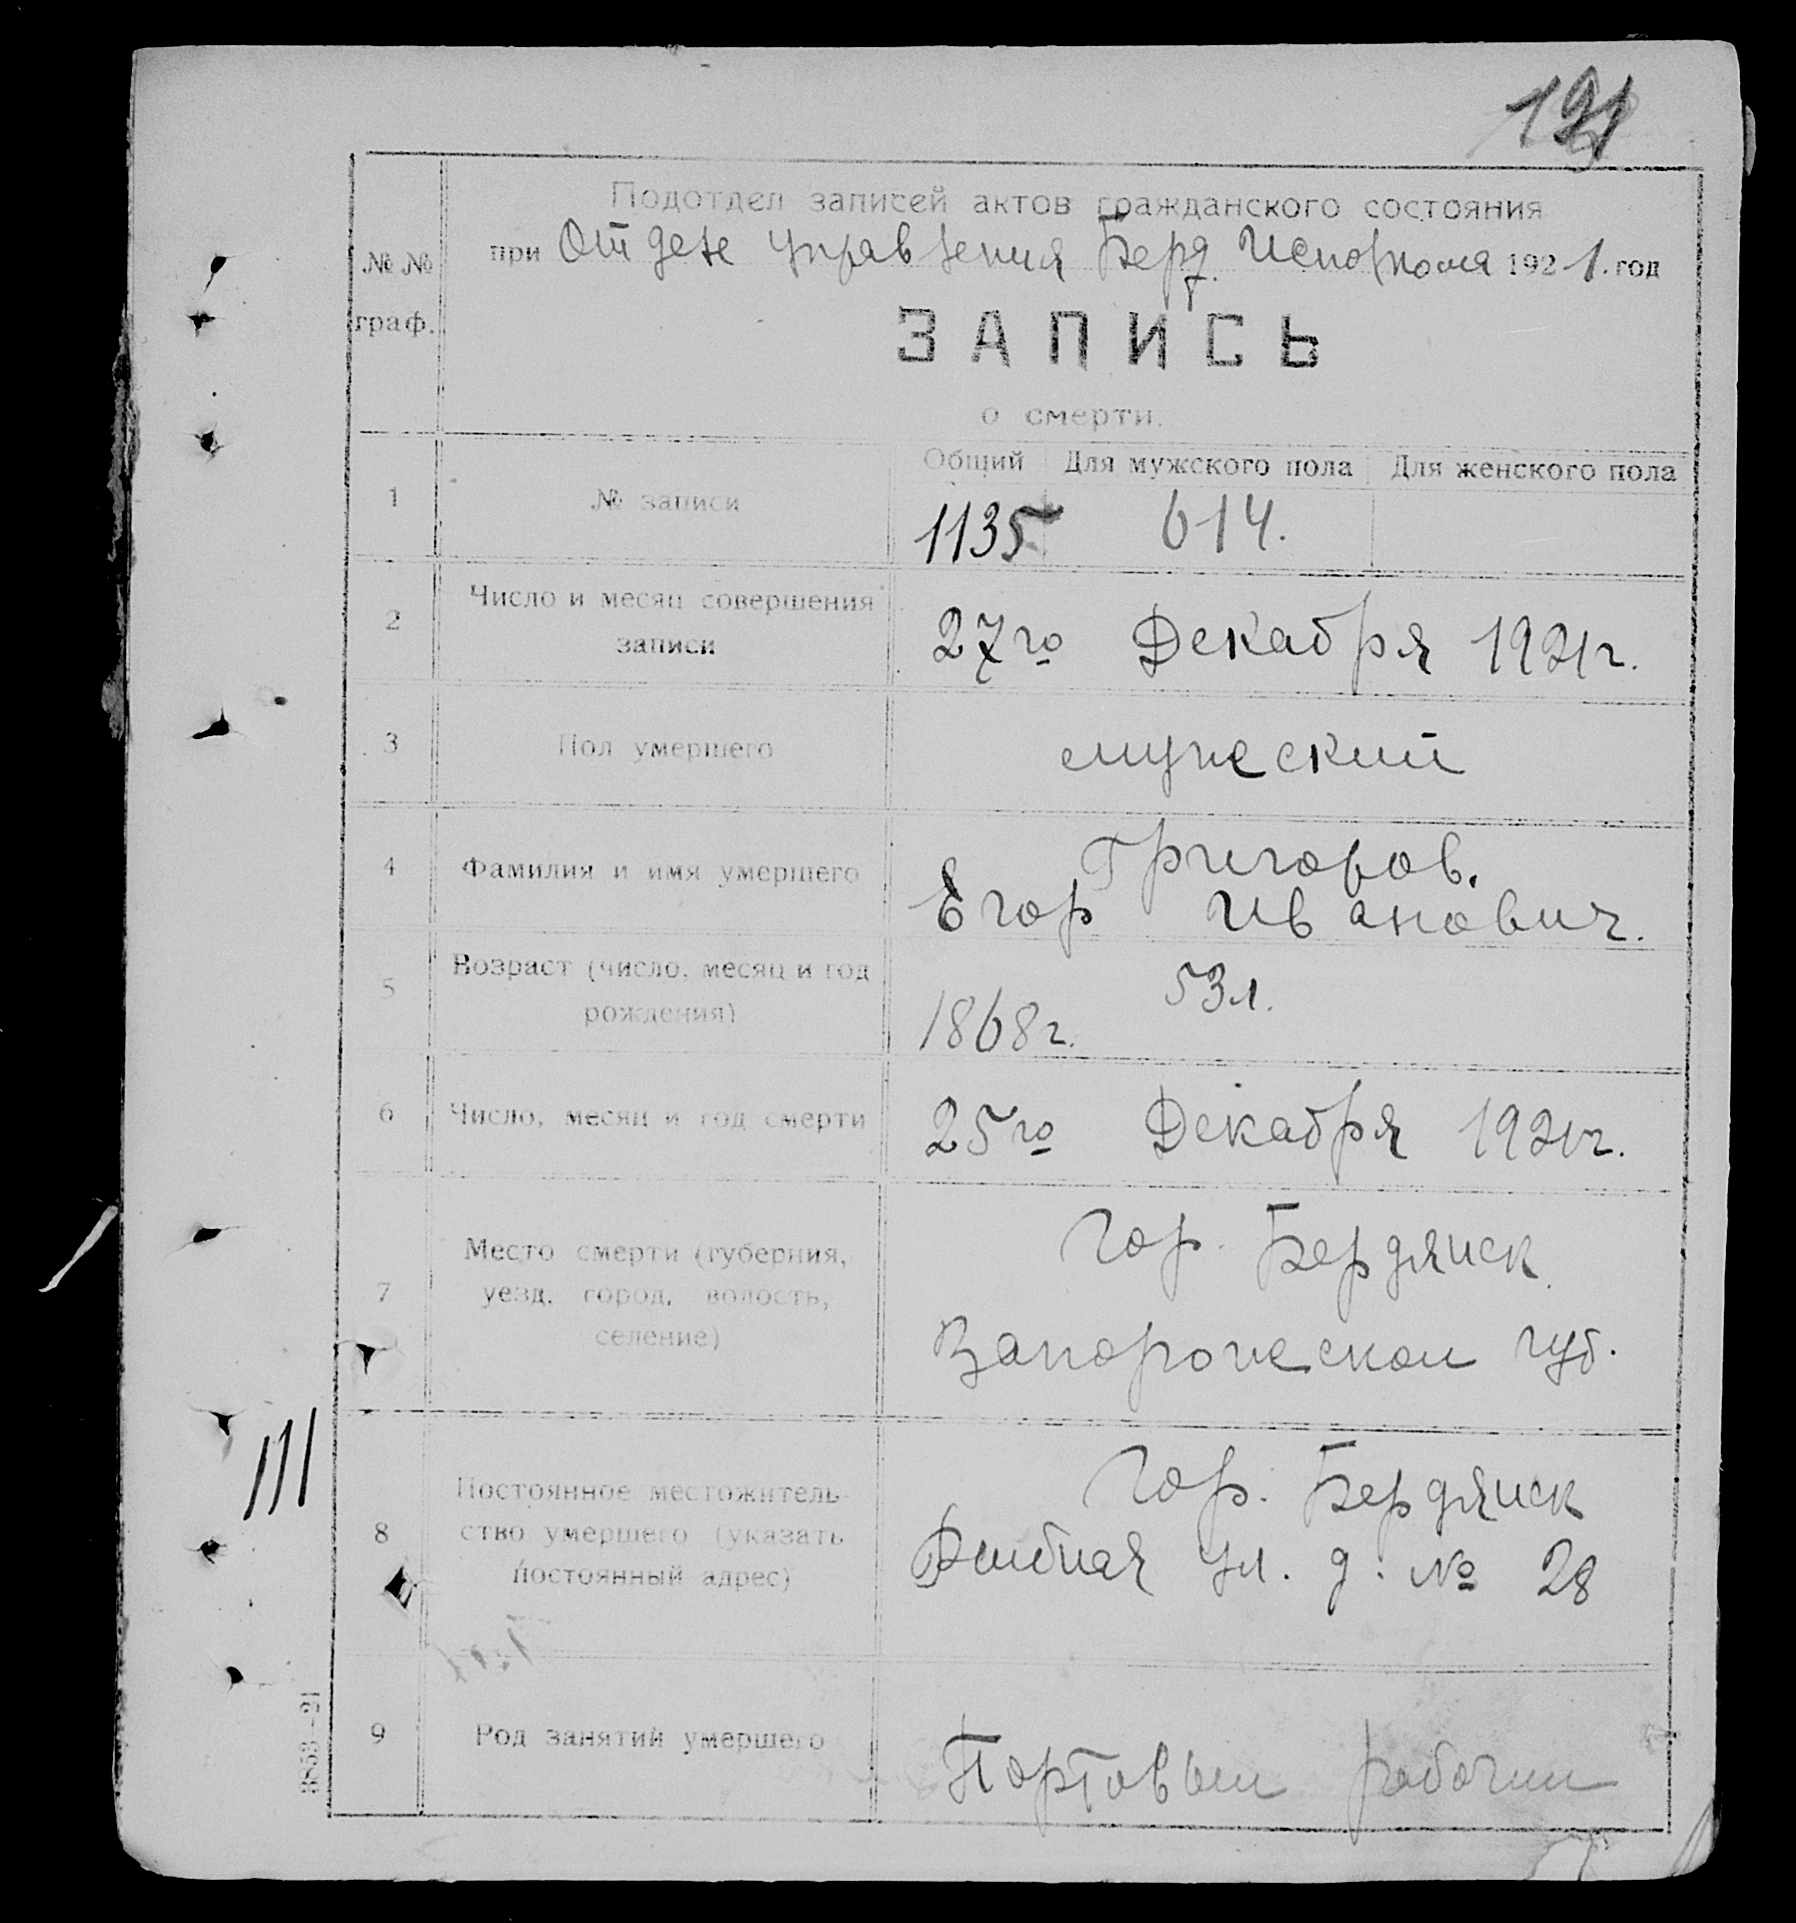 191
Подотдел записей актов гражданского состояния
при Отделе управления Берд. Исполкома 1921. год
№ №
граф.
ЗАПИСЬ
о смерти.
Общий Для мужского пола Для женского пола
1 № записи 1135 614.
2 Число и месяц совершения
записи
27го Декабря 1921г.
3 Пол умершего мужеский
4 Фамилия и имя умершего
Григоров.
Егор Иванович.
5 Возраст (число, месяц и год
рождения)
53л.
1868г.
6 Число, месяц и год смерти 25го Декабря 1921г.
7 Место смерти (губерния,
уезд, город, волость,
селение)
Гор. Бердянск
Запорожеской губ.
8 Постоянное местожитель-
ство умершего (указать
постоянный адрес)
Гор. Бердянск
Рыбная ул. д. № 28
9 Род занятий умершего Портовый рабочий
3853-21